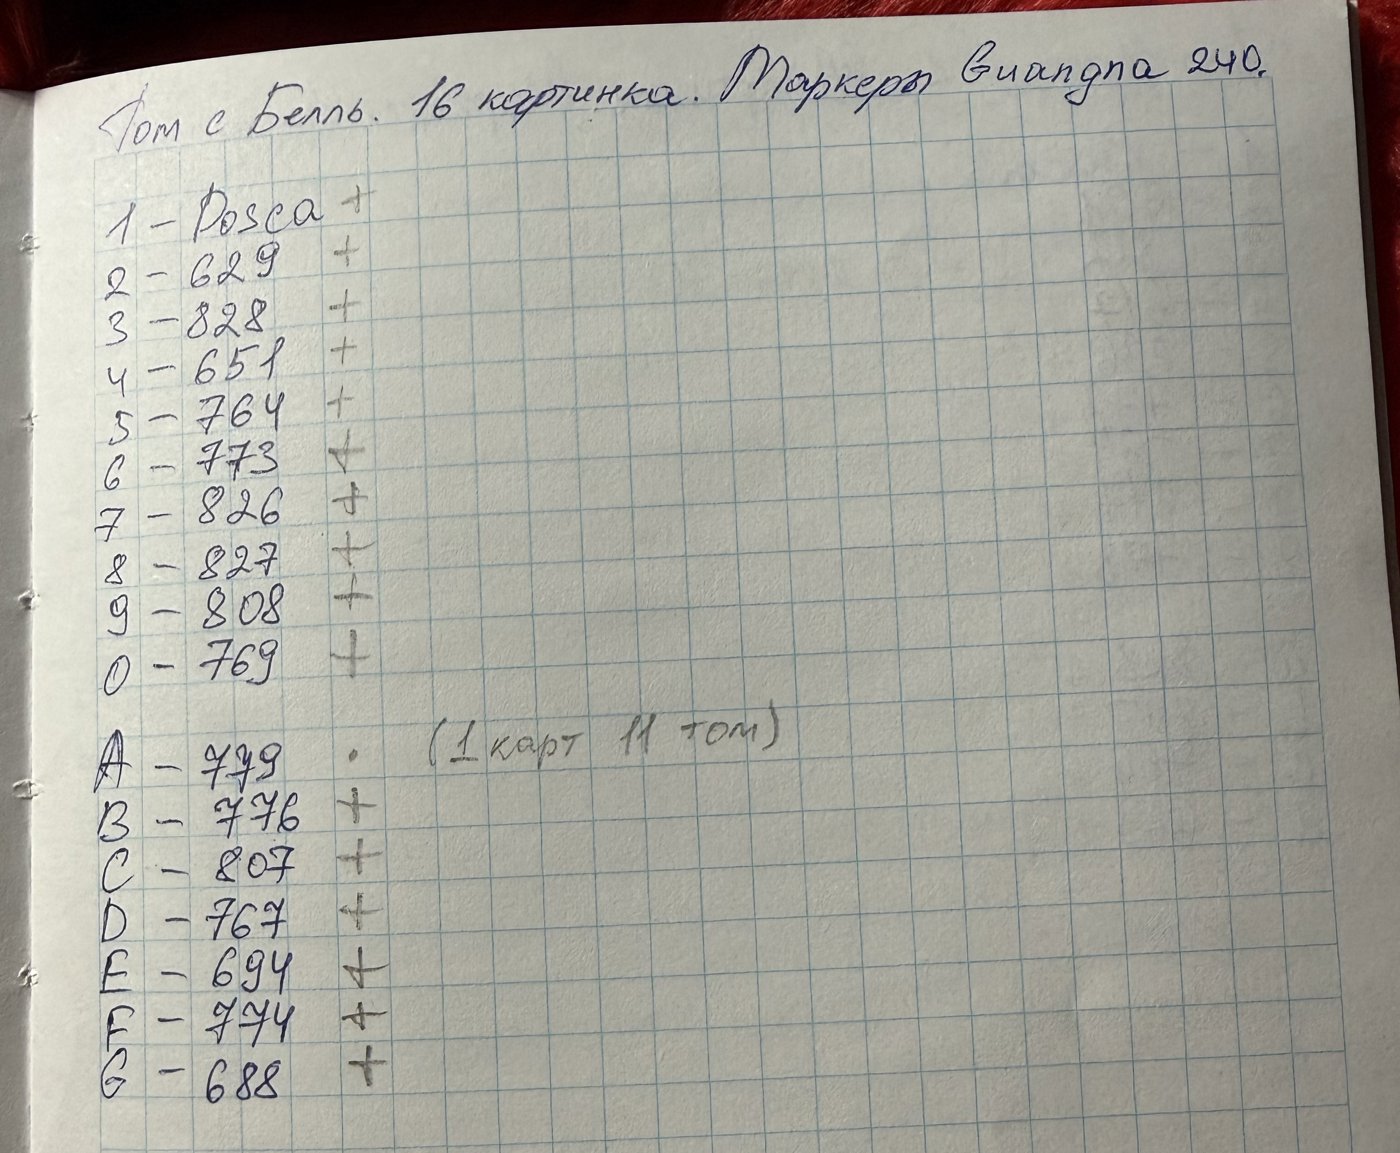 Том с Белль. 16 картинка. Маркеры Guangna 240.
1 - Posca +
2 - 629 +
3 - 828 +
4 - 651 +
5 - 764 +
6 - 773 +
7 - 826 +
8 - 827 +
9 - 808 +
0 - 769 +
A - 779 • (1 карт 11 том)
B - 776 +
C - 807 +
D - 767 +
E - 694 +
F - 774 +
G - 688 +